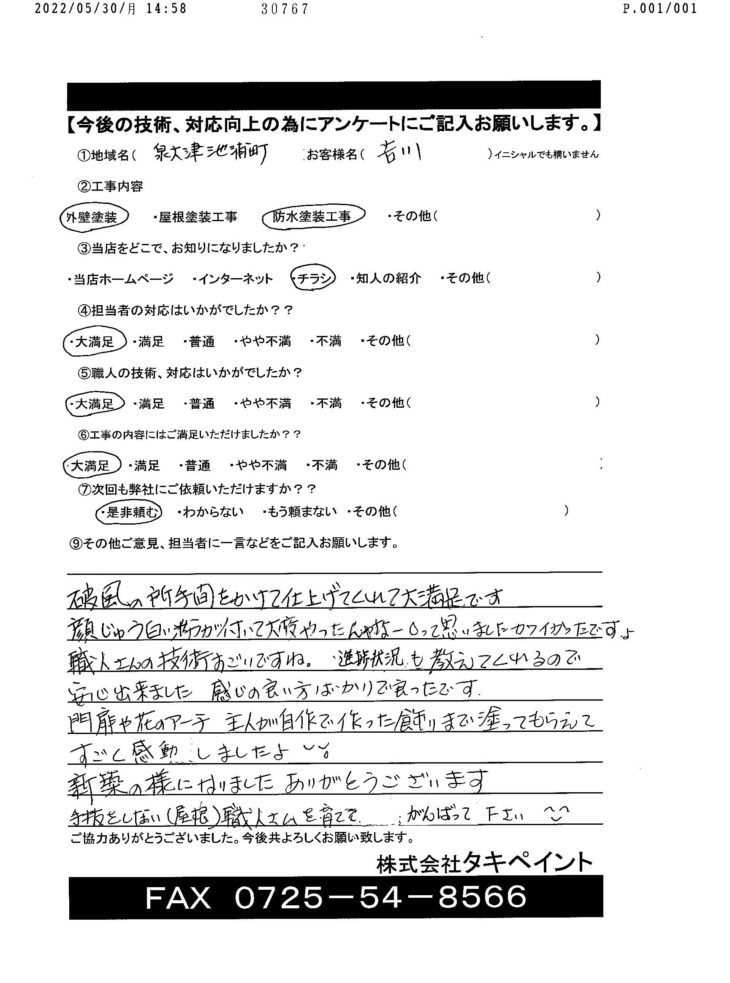 2022/05/30/月 14:58 30767 P.001/001
【今後の技術、対応向上の為にアンケートにご記入お願いします。】
①地域名( 泉大津池浦町 お客様名( 吉川 )イニシャルでも構いません
②工事内容
外壁塗装 ・屋根塗装工事 防水塗装工事 ・その他( )
③当店をどこで、お知りになりましたか？
・当店ホームページ ・インターネット ・チラシ ・知人の紹介 ・その他( )
④担当者の対応はいかがでしたか？？
・大満足 ・満足 ・普通 ・やや不満 ・不満 ・その他( )
⑤職人の技術、対応はいかがでしたか？
・大満足 ・満足 ・普通 ・やや不満 ・不満 ・その他( )
⑥工事の内容にはご満足いただけましたか？？
・大満足 ・満足 ・普通 ・やや不満 ・不満 ・その他(
⑦次回も弊社にご依頼いただけますか？？
・是非頼む ・わからない ・もう頼まない ・その他( )
⑨その他ご意見、担当者に一言などをご記入お願いします。
破風の所手間をかけて仕上げてくれて大満足です
顔じゅう白い粉が付いて大変やったんやなーって思いましたカワイかったですよ
職人さんの技術すごいですね。進捗状況も教えてくれるので
安心出来ました 感じの良い方ばかりで良ったです.
門扉や花のアーチ 主人が自作で作った飾りまで塗ってもらえて
すごく感動しましたよ
新築の様になりました ありがとうございます
手抜をしない(屋根)職人さんを育てて がんばって下さい ^^
ご協力ありがとうございました。今後共よろしくお願い致します。
株式会社タキペイント
FAX 0725－54－8566